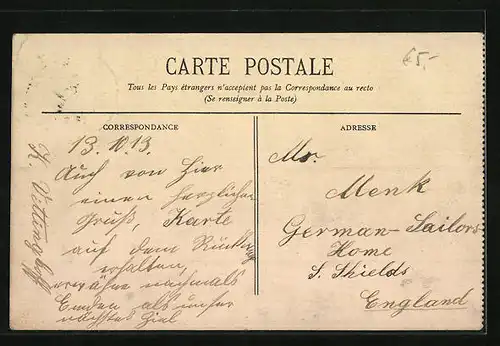 CARTE POSTALE
€5,-
Tous les Pays étrangers n'acceptent pas la Correspondance au recto
(Se renseigner à la Poste)
CORRESPONDANCE
13.10.13.
Auch von hier
einen herzlichen
Gruß, Karte
auf dem
erhalten,
erwähne nochmals
Emden als unser
nächstes Ziel
K. Vittinghoff
ADRESSE
Mr.
Menk
German-Sailors
Home
S. Shields
England